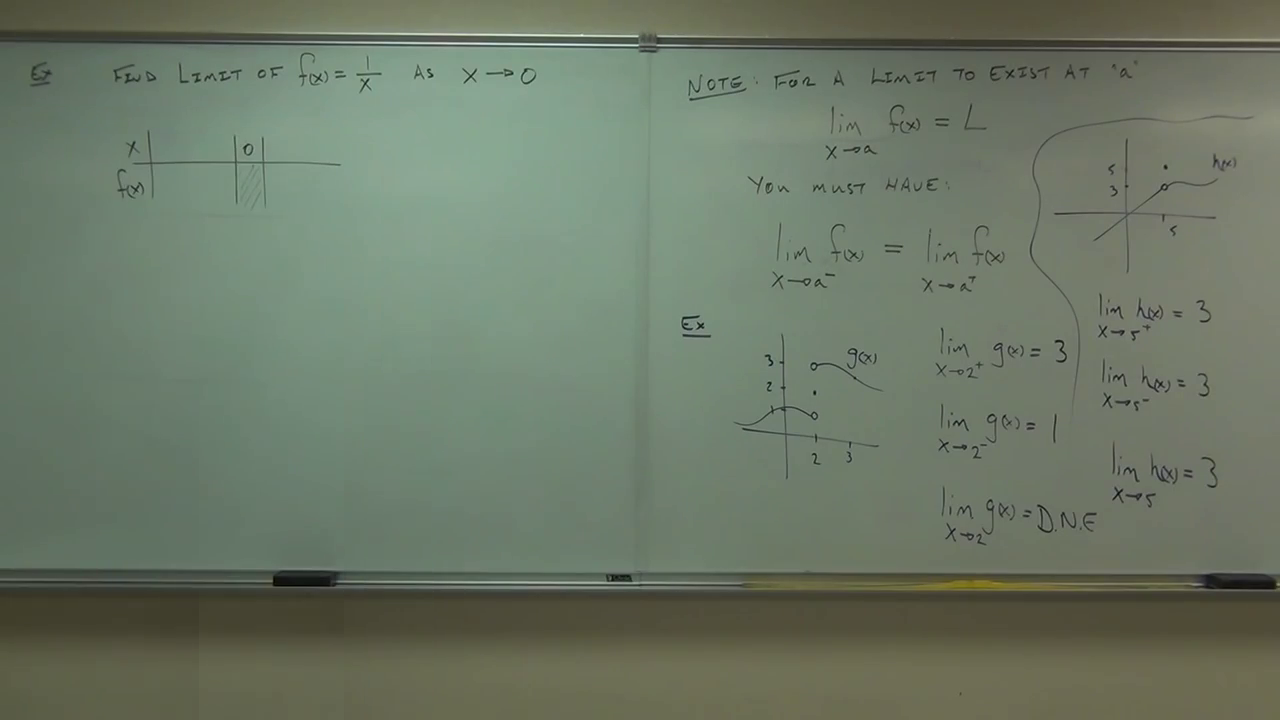 Ex FIND LIMIT OF f(x) = 1/x AS X → 0
X 0
f(x)
NOTE: FOR A LIMIT TO EXIST AT "a"
lim x→a f(x) = L
YOU MUST HAVE:
lim x→a⁻ f(x) = lim x→a⁺ f(x)
Ex
3
2
1
g(x)
2 3
lim x→2⁺ g(x) = 3
lim x→2⁻ g(x) = 1
lim x→2 g(x) = D.N.E
5
3
h(x)
5
lim x→5⁺ h(x) = 3
lim x→5⁻ h(x) = 3
lim x→5 h(x) = 3